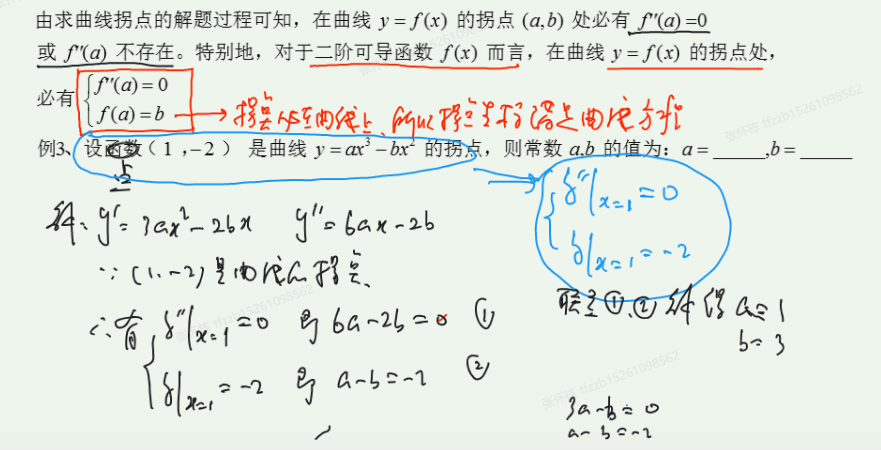 由求曲线拐点的解题过程可知，在曲线 y = f(x) 的拐点 (a,b) 处必有 f″(a)=0
或 f″(a) 不存在。特别地，对于二阶可导函数 f(x) 而言，在曲线 y = f(x) 的拐点处，
必有 { f″(a) = 0
f(a) = b → 拐点在曲线上、所以拐点坐标满足曲线方程
例3、设函数（1，−2） 是曲线 y = ax³ − bx² 的拐点，则常数 a,b 的值为：a = _____,b = _____
点
{ y″|x=1 = 0
y|x=1 = -2
解、y′ = 3ax² - 2bx y″ = 6ax - 2b
∵ (1,-2) 是曲线的拐点、
∴有 { y″|x=1 = 0 即 6a-2b=0 ①
y|x=1 = -2 即 a-b=-2 ②
联立①、② 解得 a=1
b=3
3a-b=0
a-b=-2
张怀栋 tfzzb15261098562